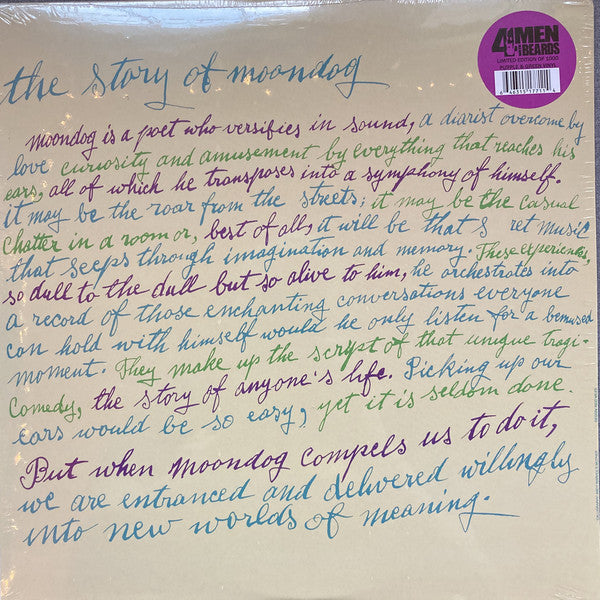 the story of moondog
4 MEN
with BEARDS
LIMITED EDITION OF 1000
PURPLE & GREEN VINYL
moondog is a poet who versifies in sound, a diarist overcome by
love curiosity and amusement by everything that reaches his
ears, all of which he transposes into a symphony of himself.
it may be the roar from the streets; it may be the casual
chatter in a room or, best of all, it will be that s ret music
that seeps through imagination and memory. These experiences,
so dull to the dull but so alive to him, he orchestrates into
a record of those enchanting conversations everyone
can hold with himself would he only listen for a bemused
moment. They make up the script of that unique tragi-
comedy, the story of anyone's life. Picking up our
ears would be so easy, yet it is seldom done.
But when moondog compels us to do it,
we are entranced and delivered willingly
into new worlds of meaning.